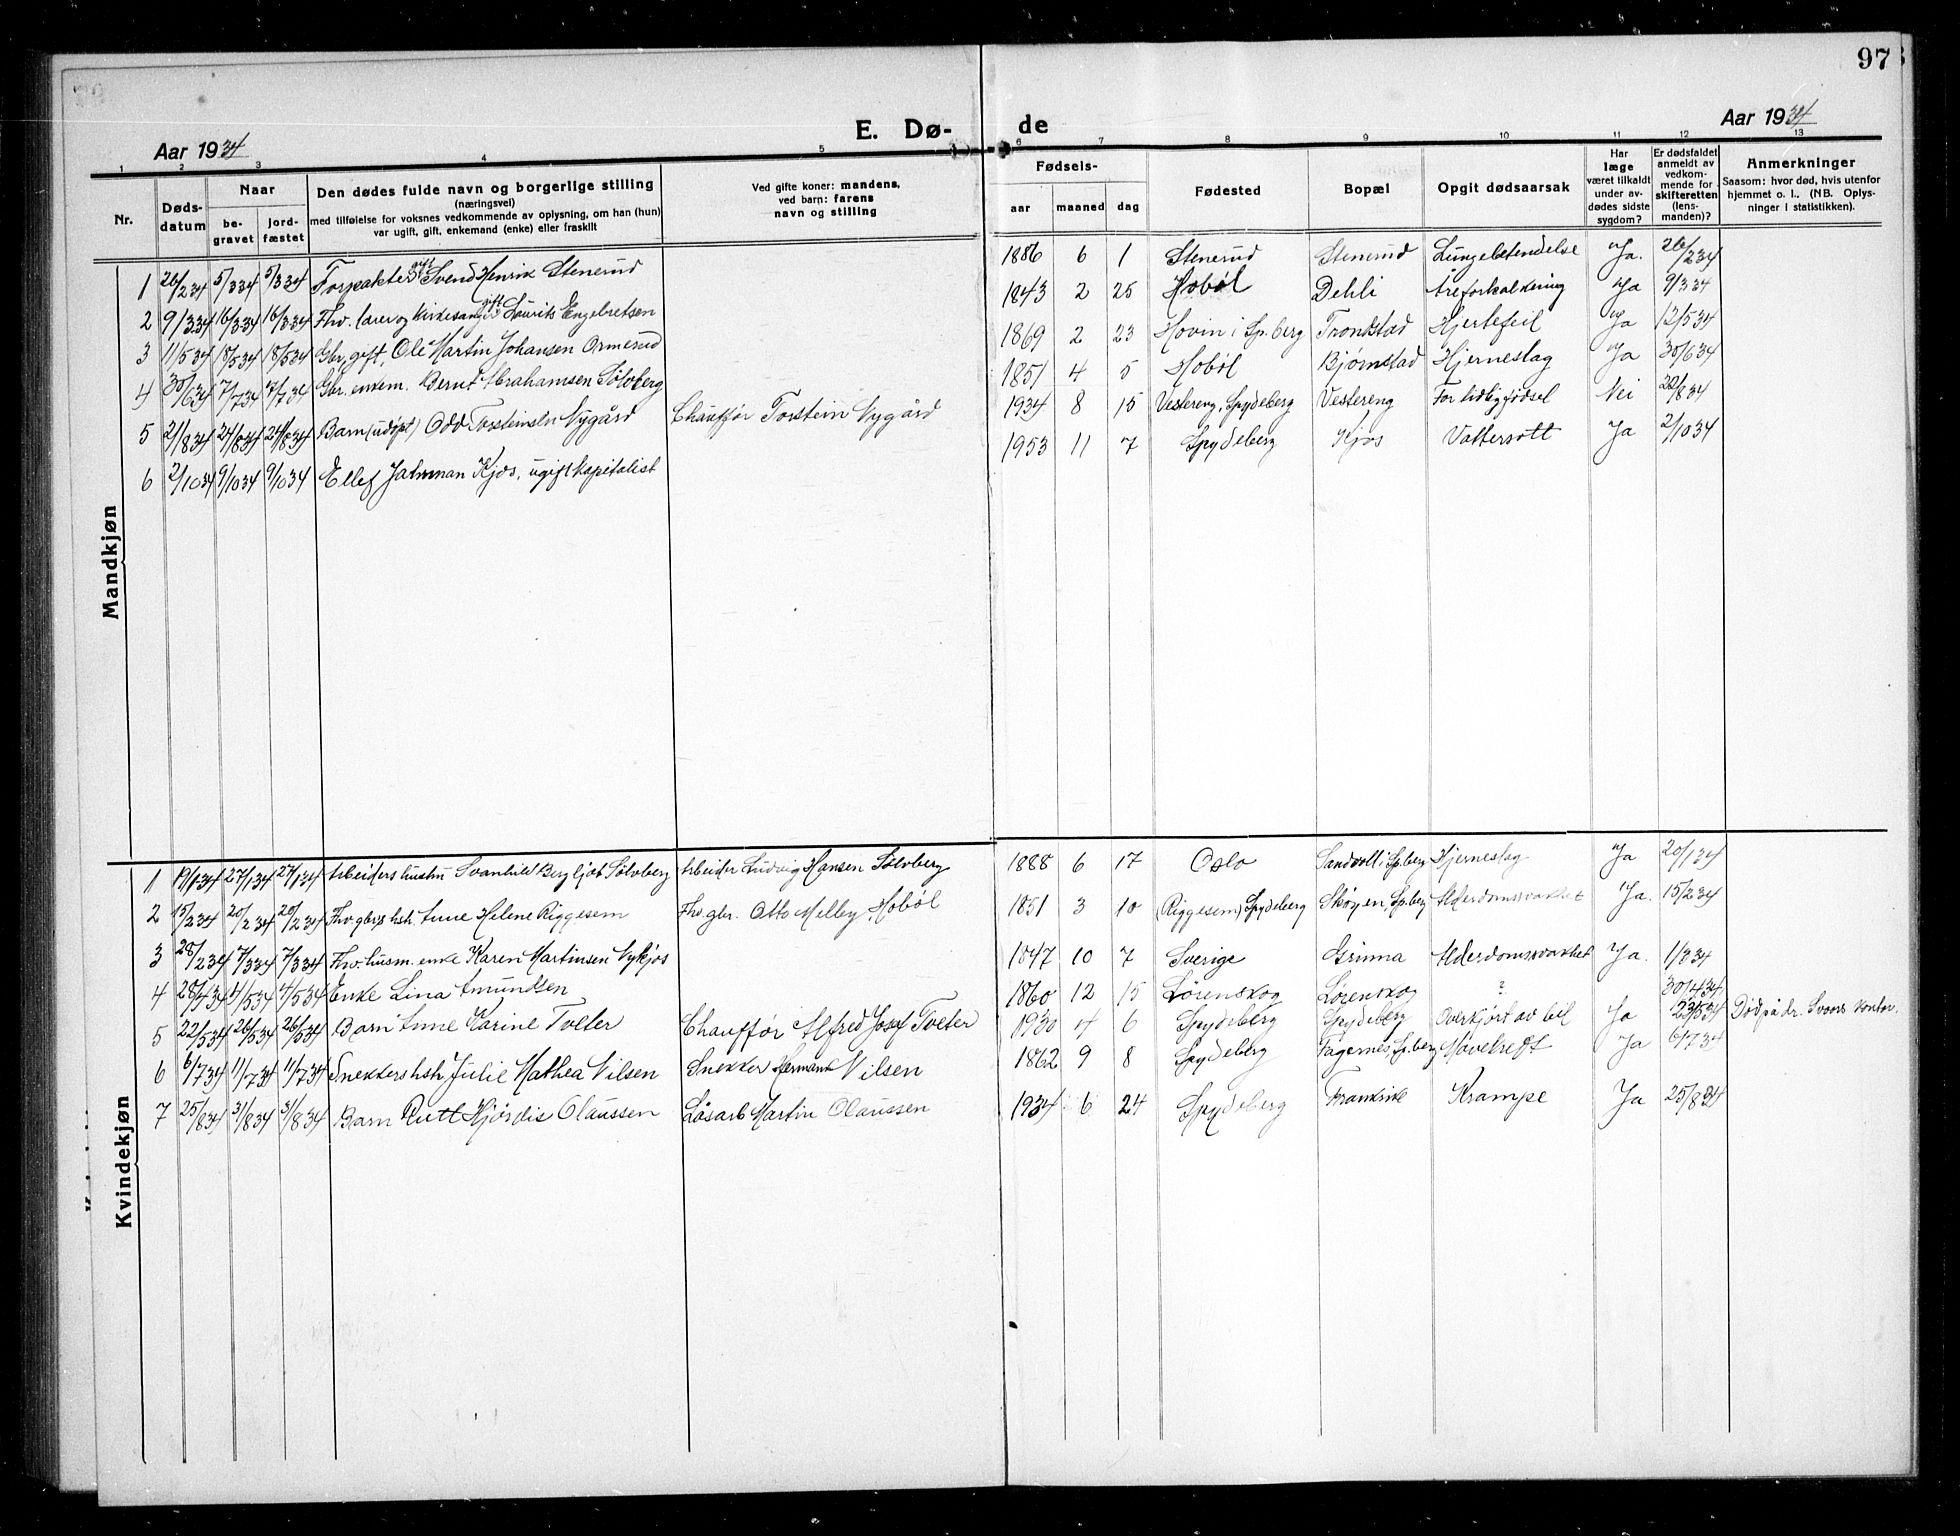 97
Aar 1934
E. Dø-
de
Aar 1934
1 2 3 4 5 6 7 8 9 10 11 12 13
Nr.
Døds-
datum
Naar
be-
gravet
jord-
fæstet
Den dødes fulde navn og borgerlige stilling
(næringsvei)
med tilføielse for voksnes vedkommende av oplysning, om han (hun)
var ugift, gift, enkemand (enke) eller fraskilt
Ved gifte koner: mandens,
ved barn: farens
navn og stilling
Fødsels-
aar maaned dag
Fødested
Bopæl
Opgit dødsaarsak
Har
læge
været tilkaldt
under av-
dødes sidste
sygdom?
Er dødsfaldet
anmeldt av
vedkom-
mende for
skifteretten
(lens-
manden)?
Anmerkninger
Saasom: hvor død, hvis utenfor
hjemmet o. l.. (NB. Oplys-
ninger i statistikken).
Mandkjøn
1 26/2 34 5/3 34 5/3 34 Forpakter gift Svend Henrik Stenerud 1886 6 1 Stenerud Stenerud Lungebetendelse Ja. 26/2 34
2 9/3 34 16/3 34 16/3 34 Fhv. lærer og kirkesang. gift Laurits Engebretsen 1843 2 25 Hobøl Dehli Åreforkalkning Ja 9/3 34
3 11/5 34 18/5 34 18/5 34 Gbr. gift, Ole Martin Johansen Ormerud 1869 2 23 Hovin i Sp.berg Tronstad Hjertefeil Ja 12/5 34
4 30/6 34 7/7 34 7/7 34 Gbr. enkem. Bernt Abrahamsen Sölvberg 1851 4 5 Hobøl Bjørnstad Hjerneslag Ja 30/6 34
5 21/8 34 24/8 34 24/8 34 Barn (udøpt) Odd Torsteinsen Nygård Chauffør Torstein Nygård 1934 8 15 Vestereng, Spydeberg Vestereng For tidlig fødsel Nei 22/8 34
6 2/10 34 9/10 34 9/10 34 Ellef Kjos, ugift kapitalist 1953 11 7 Spydeberg Kjos Vattersott Ja 2/10 34
Kvindekjøn
1 19/1 34 27/1 34 27/1 34 Arbeiders hustru Svanhild Bergljot Sölvberg Arbeider Ludvig Hansen Sölvberg 1888 6 17 Oslo Sandvoll i Sp.berg Hjerneslag Ja 20/1 34
2 15/2 34 20/2 34 20/2 34 Fhv. gbrs hstr. Anne Helene Riggesem Fhv. gbr. Otto Melby, Hobøl 1851 3 10 (Riggesem) Spydeberg Skøyen, Sp.berg Alderdomssvakhet Ja. 15/2 34
3 28/2 34 7/3 34 7/3 34 Fhv. husm. enke Karen Martinsen Nykjos 1847 10 7 Sverige Grinna Alderdomssvakhet Ja. 1/3 34
4 28/4 34 4/5 34 4/5 34 Enke Lina Amundsen 1860 12 15 Lørenskog Lørenskog ? 30/4 34
5 22/5 34 26/5 34 26/5 34 Barn Anne Karine Tveter Chauffør Alfred Josef Tveter 1930 4 6 Spydeberg Spydeberg Overkjørt av bil Ja 23/5 34 Död på dr. Svors kontor.
6 6/7 34 11/7 34 11/7 34 Snekkers hstr. Julie Mathea Nilsen Snekker Herman Nilsen 1862 9 8 Spydeberg Fagernes, Sp.berg Mavekreft Ja 6/7 34
7 25/8 34 31/8 34 31/8 34 Barn Rutt Hjördis Olaussen Løsarb. Martin Olaussen 1934 6 24 Spydeberg Frankrike Krampe Ja 25/8 34